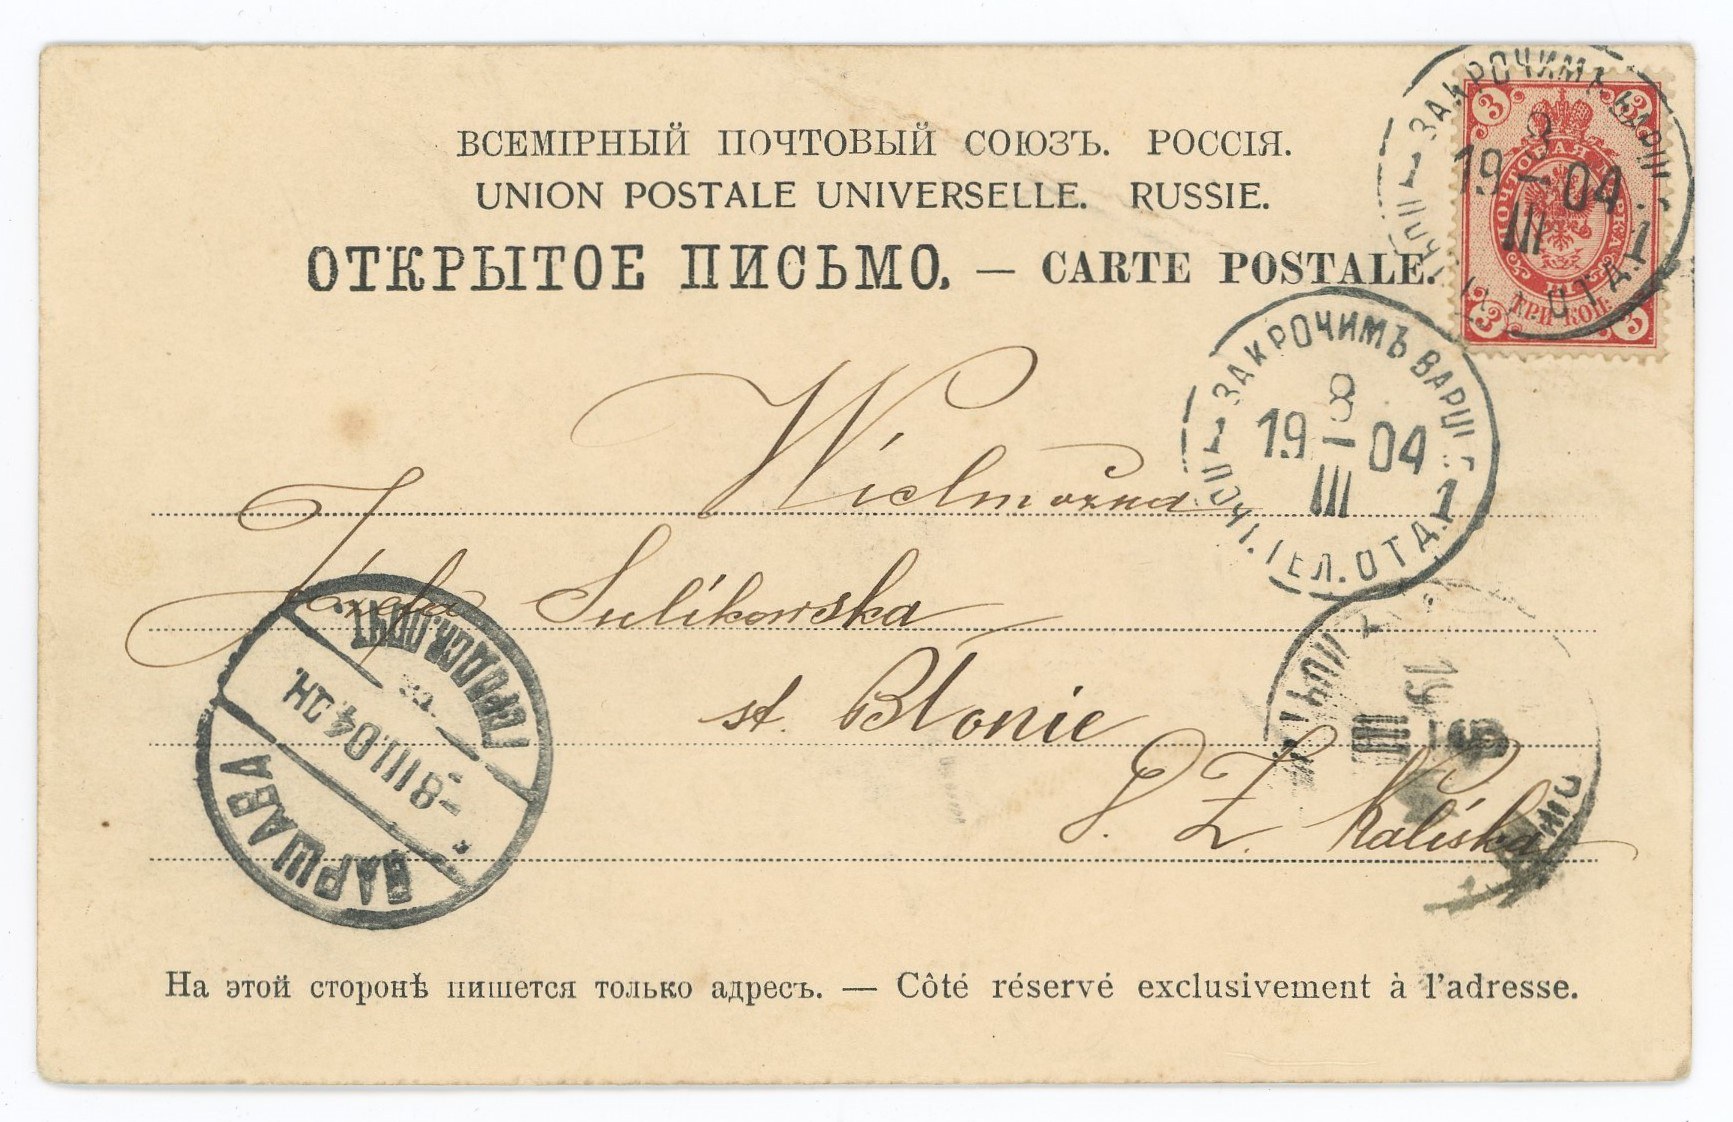 ВСЕМІРНЫЙ ПОЧТОВЫЙ СОЮЗЪ. РОССІЯ.
UNION POSTALE UNIVERSELLE. RUSSIE.
ОТКРЫТОЕ ПИСЬМО. — CARTE POSTALE.
3 3
ПОЧТОВАЯ МАРКА
ТРИ КОП.
3 3
ЗАКРОЧИМЪ ВАРШ
8
19 — 04
III
ОТД. 1
ЗАКРОЧИМЪ ВАРШ. Г.
8
19 — 04
III
1 ПОЧТ. ТЕЛ. ОТД. 1
Wielmożna
Józefa Sulikowska
st. Błonie
D. Ż. Kaliska
ВАРШАВА
-8 III.04. ДН.
ГОРОДСК. ПОЧТ.
19
III
На этой сторонѣ пишется только адресъ. — Côté réservé exclusivement à l'adresse.